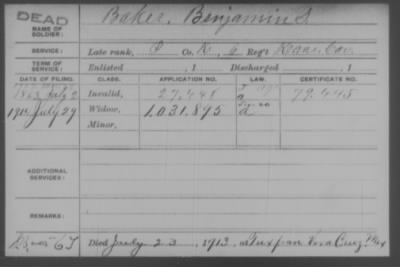 DEAD
NAME OF SOLDIER: Baker, Benjamin S
SERVICE: Late rank, P Co. K, 6 Reg't Kans. Cav.
TERM OF SERVICE: Enlisted , 1 Discharged , 1
DATE OF FILING. CLASS. APPLICATION NO. LAW. CERTIFICATE NO.
1863 July 2 Invalid, 27.448 79.448
1914 July 29 Widow, 1.031.895
Minor,
ADDITIONAL SERVICES:
REMARKS:
Died July 23, 1913, at Tuxpan Vera Cruz Mex